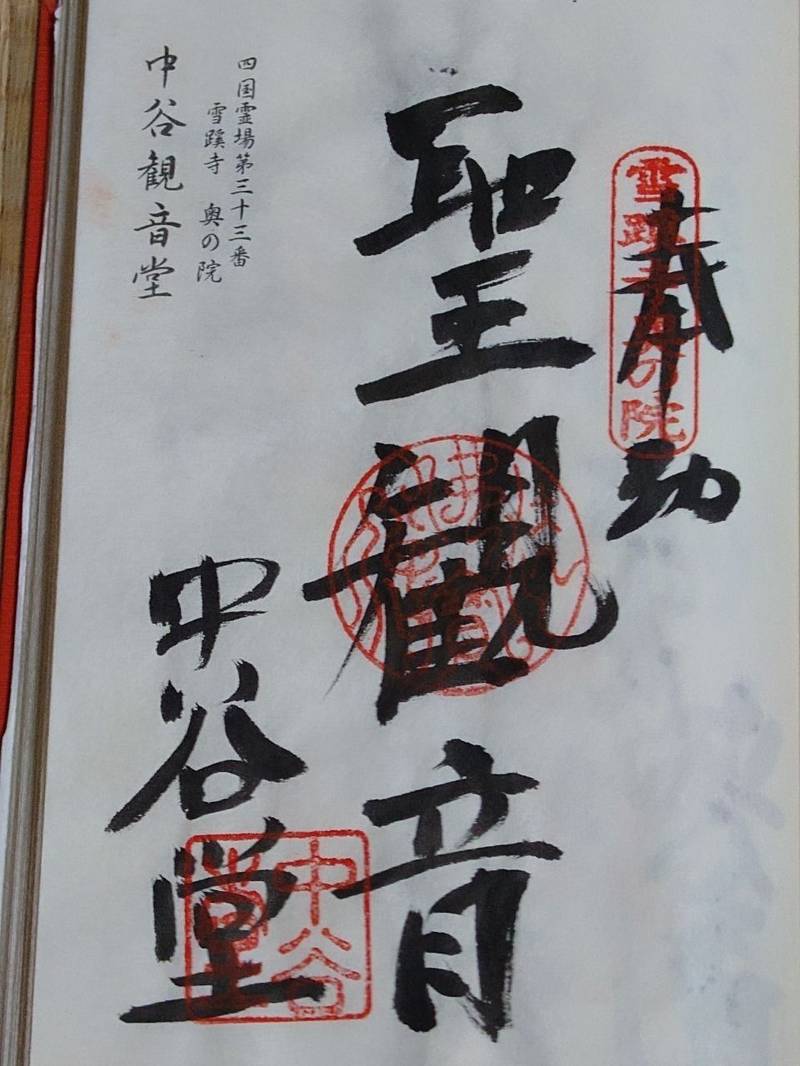 雪蹊寺奥の院
奉
聖観音
中谷堂
中谷
四国霊場第三十三番
雪蹊寺 奥の院
中谷観音堂